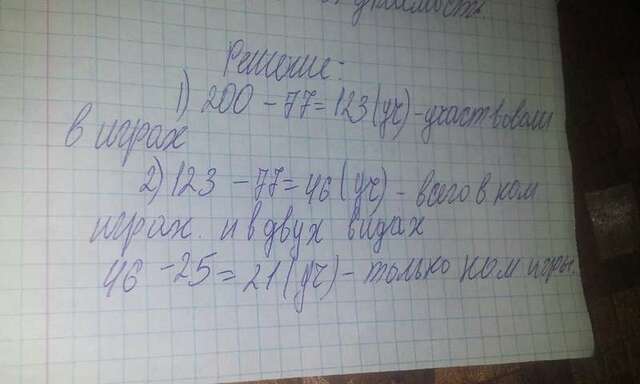 Решение:
1) 200 - 77 = 123 (уч) - участвовали
в играх
2) 123 - 77 = 46 (уч) - всего в ком
играх. и в двух видах
46 - 25 = 21 (уч) - только ком игры.